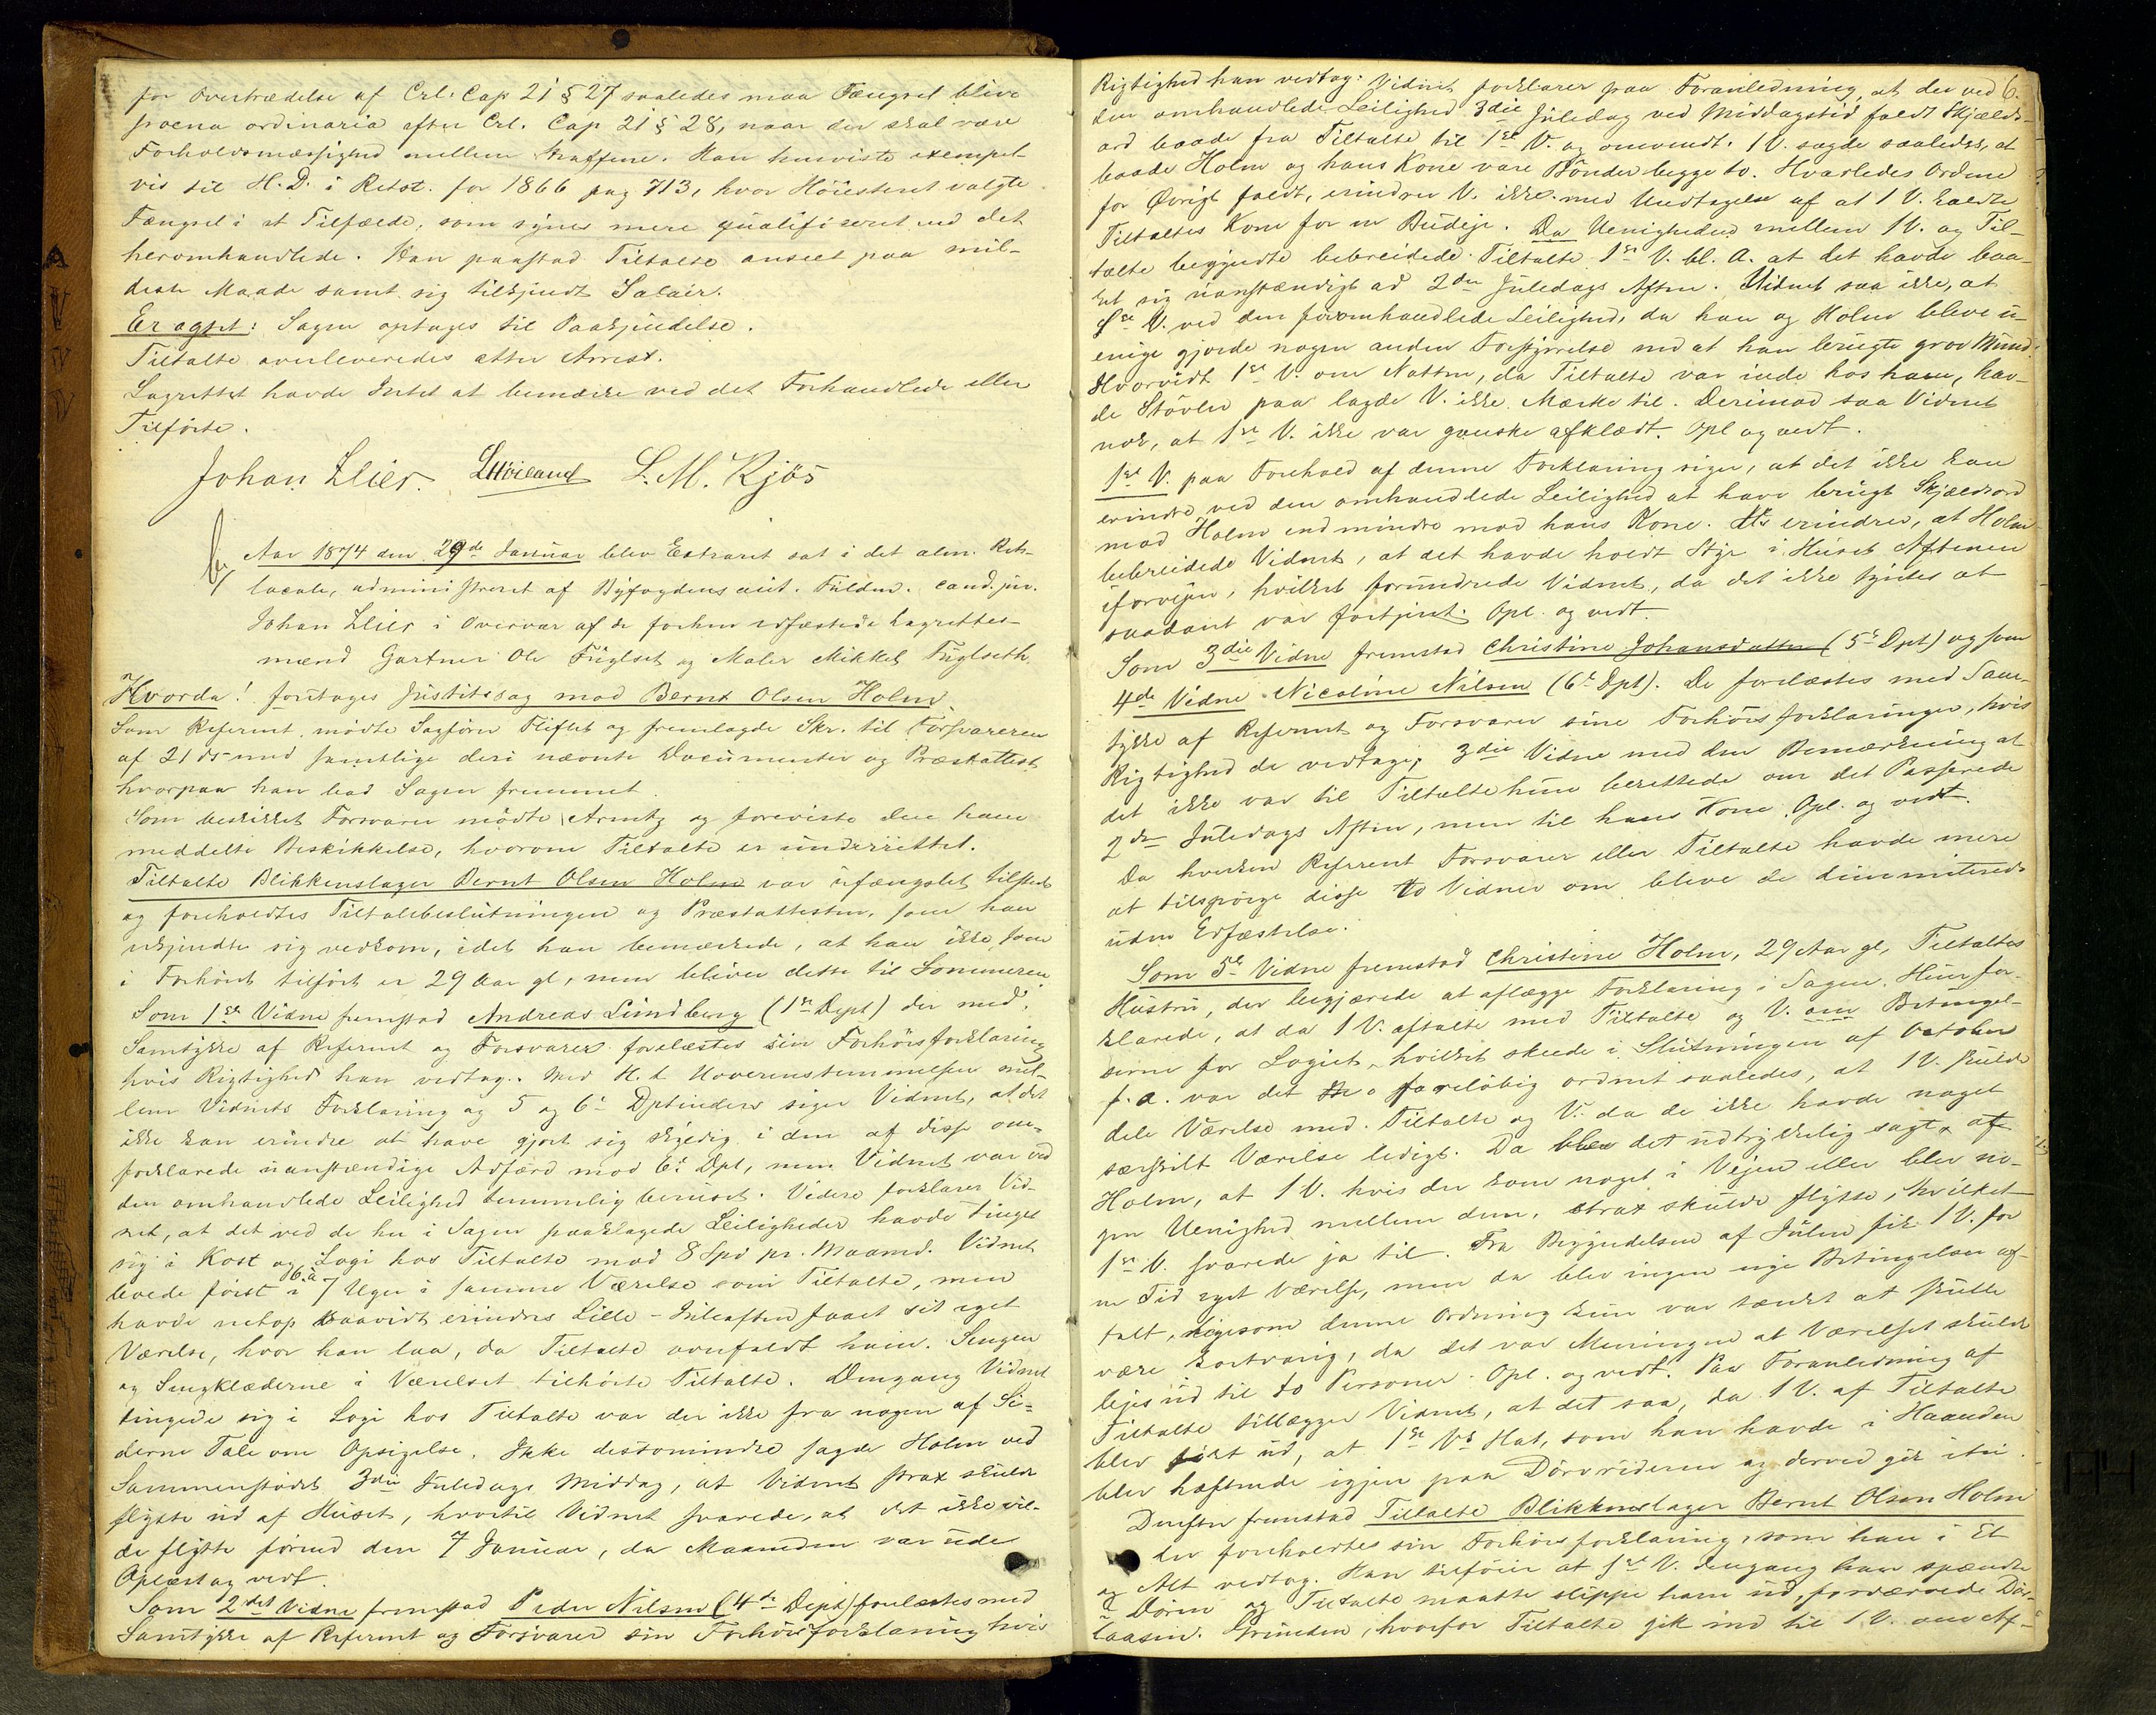 for Overtrædelse af Crl. Cap 21 § 27 saaledes maa Fængsel blive
poena ordinaria efter Crl. Cap 21 § 28, naar der skal være
Forholdsmæssighed mellem Straffene. Han henviste exempel-
vis til H.D. i Retst. for 1866 pag 713, hvor Höiesteret valgte
Fængsel i et Tilfælde, som synes mere qualificeret end det
heromhandlede. Han paastod Tiltalte anseet paa mil-
deste Maade samt sig tilkjendt Salair.
Er agtet: Sagen optages til Paakjendelse.
Tiltalte overleveredes atter Arrest.
Lagrettet havde Intet at bemærke ved det Forhandlede eller
Tilförte.
Johan Lier. LHöiland L. M. Kjös
Aar 1874 den 29de Januar blev Extraret sat i det alm. Rets-
locale, administreret af Byfogdens aut. Fuldm. cand. jur.
Johan Lier i Overvær af de forhen edfæstede Lagrettes-
mænd Gartner Ole Fuglset og Maler Mikkel Fuglseth.
Hvorda! foretages Justitssag mod Bernt Olsen Holm.
Som Referent mödte Sagförer Fliflet og fremlagde Skr. til Forsvareren
af 21 ds med samtlige deri nævnte Documenter og Præstattest
hvorpaa han bad Sagen fremmet.
Som beskikket Forsvarer mödte Arentz og foreviste den ham
meddelte Beskikkelse, hvorom Tiltalte er underrettet.
Tiltalte Blikkenslager Bernt Olsen Holm var ufængslet tilstede
og foreholdtes Tiltalebeslutningen og Præstattesten, som han
erkjendte sig vedkom, idet han bemærkede, at han ikke som
i Forhöret tilfört er 29 Aar gl, men bliver dette til Sommeren
Som 1ste Vidne fremstod Andreas Lundberg (1ste Dept) der med
Samtykke af Referent og Forsvarer forelæstes sin Forhörsforklaring
hvis Rigtighed han vedtog. Med H. t. Uoverensstemmelsen mel-
lem Vidnets Forklaring og 5 og 6te Dptinders siger Vidnet, at det
ikke kan erindre at have gjort sig skyldig i den af disse om-
forklarede uanstændige Adfærd mod 6te Dpt, men Vidnet var ved
den omhandlede Leilighed temmelig beruset. Videre forklarer Vid-
net, at det ved de her i Sagen paaklagede Leiligheder havde tinget
sig i Kost og Logi hos Tiltalte mod 8 Spd pr. Maaned. Vidnet
boede först i 6 à 7 Uger i samme Værelse som Tiltalte, men
havde netop saavidt erindres Lille-Juleaften faaet sit eget
Værelse, hvor han laa, da Tiltalte overfaldt ham. Sengen
og Sengklæderne i Værelset tilhörte Tiltalte. Dengang Vidnet
tingede sig i Logi hos Tiltalte var der ikke fra nogen af Si-
derne Tale om Opsigelse. Ikke destomindre sagde Holm ved
Sammenstödet 3die Juledags Middag, at Vidnet strax skulde
flytte ud af Huset, hvortil Vidnet svarede, at det ikke vil-
de flytte förend den 7 Januar, da Maaneden var ude
Oplæst og vedt.
Som 2det Vidne fremstod Peder Nilsen (4de Dept) forelæstes med
Samtykke af Referent og Forsvarer sin Forhörsforklaring hvis
Rigtighed han vedtog. Vidnet forklarer paa Foranledning, at der ved 6.
den omhandlede Leilighed 3die Juledag ved Middagstid faldt Skjælds-
ord baade fra Tiltalte til 1ste V. og omvendt. 1 V. sagde saaledes, at
baade Holm og hans Kone vare Bönder begge to. Hvorledes Ordene
for Övrigt faldt, erindrer V. ikke med Undtagelse af at 1 V. kaldte
Tiltaltes Kone for en Budeje. Da Uenigheden mellem 1 V. og Til-
talte begyndte bebreidede Tiltalte 1ste V. bl. A. at det havde baa-
ret sig uanstændigt ad 2den Juledags Aften. Vidnet saa ikke, at
1ste V. ved den foromhandlede Leilighed, da han og Holm bleve u-
enige gjorde nogen anden Forstyrrelse end at han brugte grov Mund.
Hvorvidt 1ste V. om Natten, da Tiltalte var inde hos ham, hav-
de Stövler paa lagde V. ikke Mærke til. Derimod saa Vidnet
nok, at 1ste V. ikke var ganske afklædt. Opl og vedt.
1ste V. paa Forehold af denne Forklaring siger, at det ikke kan
erindre ved den omhandlede Leilighed at have brugt Skjældsord
mod Holm end mindre mod hans Kone. erindrer, at Holm
bebreidede Vidnet, at det havde holdt Styr i Huset Aftenen
iforveien, hvilket forundrede Vidnet, da det ikke syntes at
saadant var fortjent. Opl. og vedt.
Som 3die Vidne fremstod Christine Johansdatter (5te Dpt) og som
4de Vidne Nicoline Nilsen (6te Dpt). De forelæstes med Sam-
tykke af Referent og Forsvarer sine Forhörsforklaringer, hvis
Rigtighed de vedtoge, 3die Vidne med den Bemærkning at
det ikke var til Tiltalte hun berettede om det Passerede
2den Juledags Aften, men til hans Kone. Opl. og vedt.
Da hverken Referent Forsvarer eller Tiltalte havde mere
at tilspörge disse to Vidner om bleve de dimmiterede
uden Edfæstelse.
Som 5te Vidne fremstod Christine Holm, 29 Aar gl, Tiltaltes
Hustru, der begjærede at aflægge Forklaring i Sagen. Hun for-
klarede, at da 1 V. aftalte med Tiltalte og V. om Betingel-
serne for Logiet, hvilket skeede i Slutningen af October
f.a. var det foreløbig ordnet saaledes, at 1 V. skulde
dele Værelse med Tiltalte og V. da de ikke havde noget
særskilt Værelse ledigt. Da blev det udtrykkelig sagt af
Holm, at 1 V. hvis der kom noget i Vejen eller blev no-
gen Uenighed mellem dem, strax skulde flytte, hvilket
1ste V. svarede ja til. Fra Begyndelsen af Julen fik 1 V. for
en Tid eget Værelse, men da blev ingen nye Betingelser af-
talt, ligesom denne Ordning kun var tænkt at skulle
være kortvarig, da det var Meningen at Værelset skulde
lejes ud til to Personer. Opl. og vedt. Paa Foranledning af
Tiltalte tillægger Vidnet, at det saa, da 1 V. af Tiltalte
blev fört ud, at 1ste Vs Hat, som han havde i Haanden
blev hæftende igjen paa Dörvrideren og derved gik itu.
Derefter fremstod Tiltalte Blikkenslager Bernt Olsen Holm
der foreholdtes sin Forhörsforklaring, som han i Et
og Alt vedtog. Han tilföier at 1ste V. dengang han spændte
i Dören og Tiltalte maatte slippe ham ud, fordærvede Dör-
laasen. Grunden, hvorfor Tiltalte gik ind til 1 V. om Af-